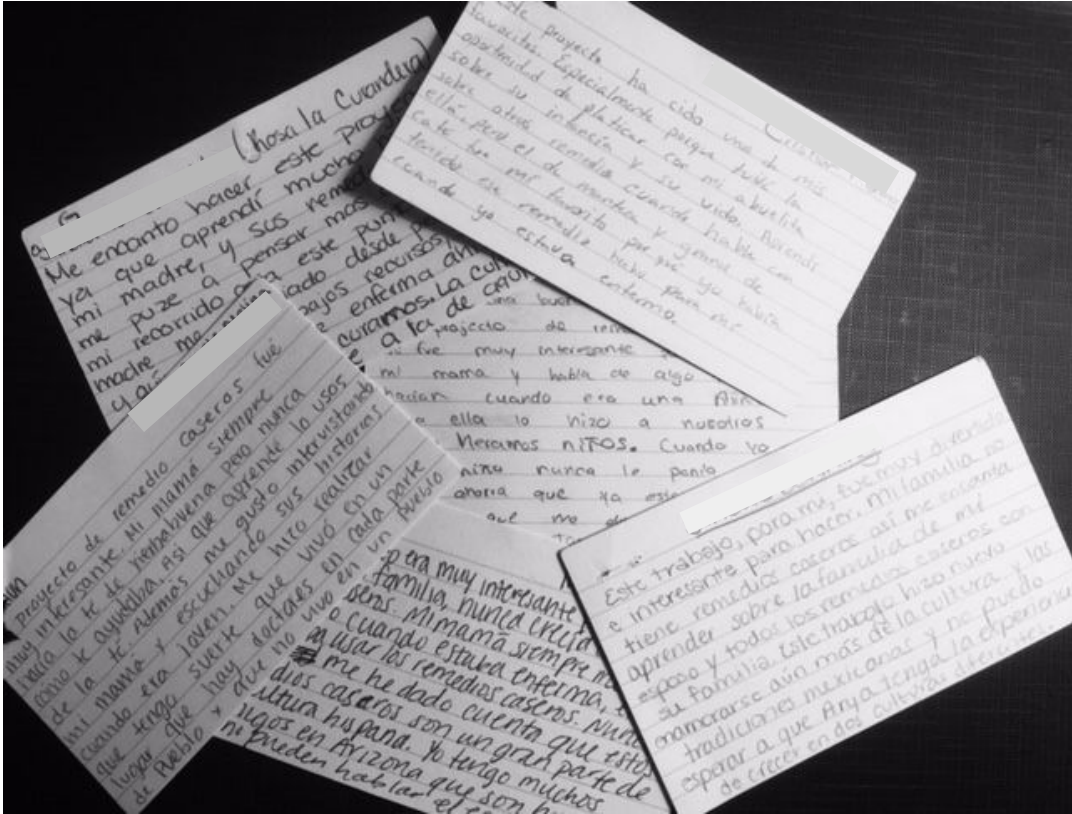 (Rosa la Curandera)
Me encanto hacer este proye
ya que aprendí mucho
mi madre, y sus remed
me puze a pensar mas
mi recorrido a este pun
madre me iado desde p
y aún bajos recursos
enferma an
curamos. La cult
a la de aqui
Este proyecto ha cido uno de mis
favoritos. Especialmente porque tube la
oportunidad de platicar con mi abuelita
sobre su infancia y su vida. Aprendi
sobre otros remedio cuando hable con
ella, pero el de manteca y grano de
cafe fue mi favorito por que yo habia
tenido ese remedio hecho para mi
cuando yo estava enferma.
una bue
projecto de rem
fue muy interesante
mi mama y habla de algo
hacian cuando era una
ella lo hizo a nosotros
eramos niños. Cuando yo
niña nunca le ponia
ahoria que ya
que me d
proyecto de remedio caseros fué
muy interesante. Mi mamá siempre
hacía la té de yierbabuena pero nunca
como te ayudaba. Asi que aprendé lo usos
de la té. Además me gusto intervistando
mi mamá y escuchando sus historias
cuando era joven. Me hizo realizar
que tengo suerte que vivó en un
lugar que hay doctores en cada parte
de Pueblo y que no vivo en un pueblo
era muy interesante
familia, nunca crecía
seros. Mi mamá siempre m
o cuando estuba enferma,
a usar los remedios caseros. Nun
me he dado cuenta que estos
dios caseros son un gran parte de
ultura hispana. Yo tengo muchos
igos en Arizona que son h
ni pueden hablar el es
Este trabajo, para mi, fue muy divertido
e interesante para hacer. Mi familia no
tiene remedios caseros así me encanta
aprender sobre la familia de mi
esposo y todos los remedios caseros con
su familia. Este trabajo hizo nuevo
enamorarse aún más de la cultura y las
tradiciones mexicanas y no puedo
esperar a que Anya tenga la experiencia
de crecer en dos culturas diferente.